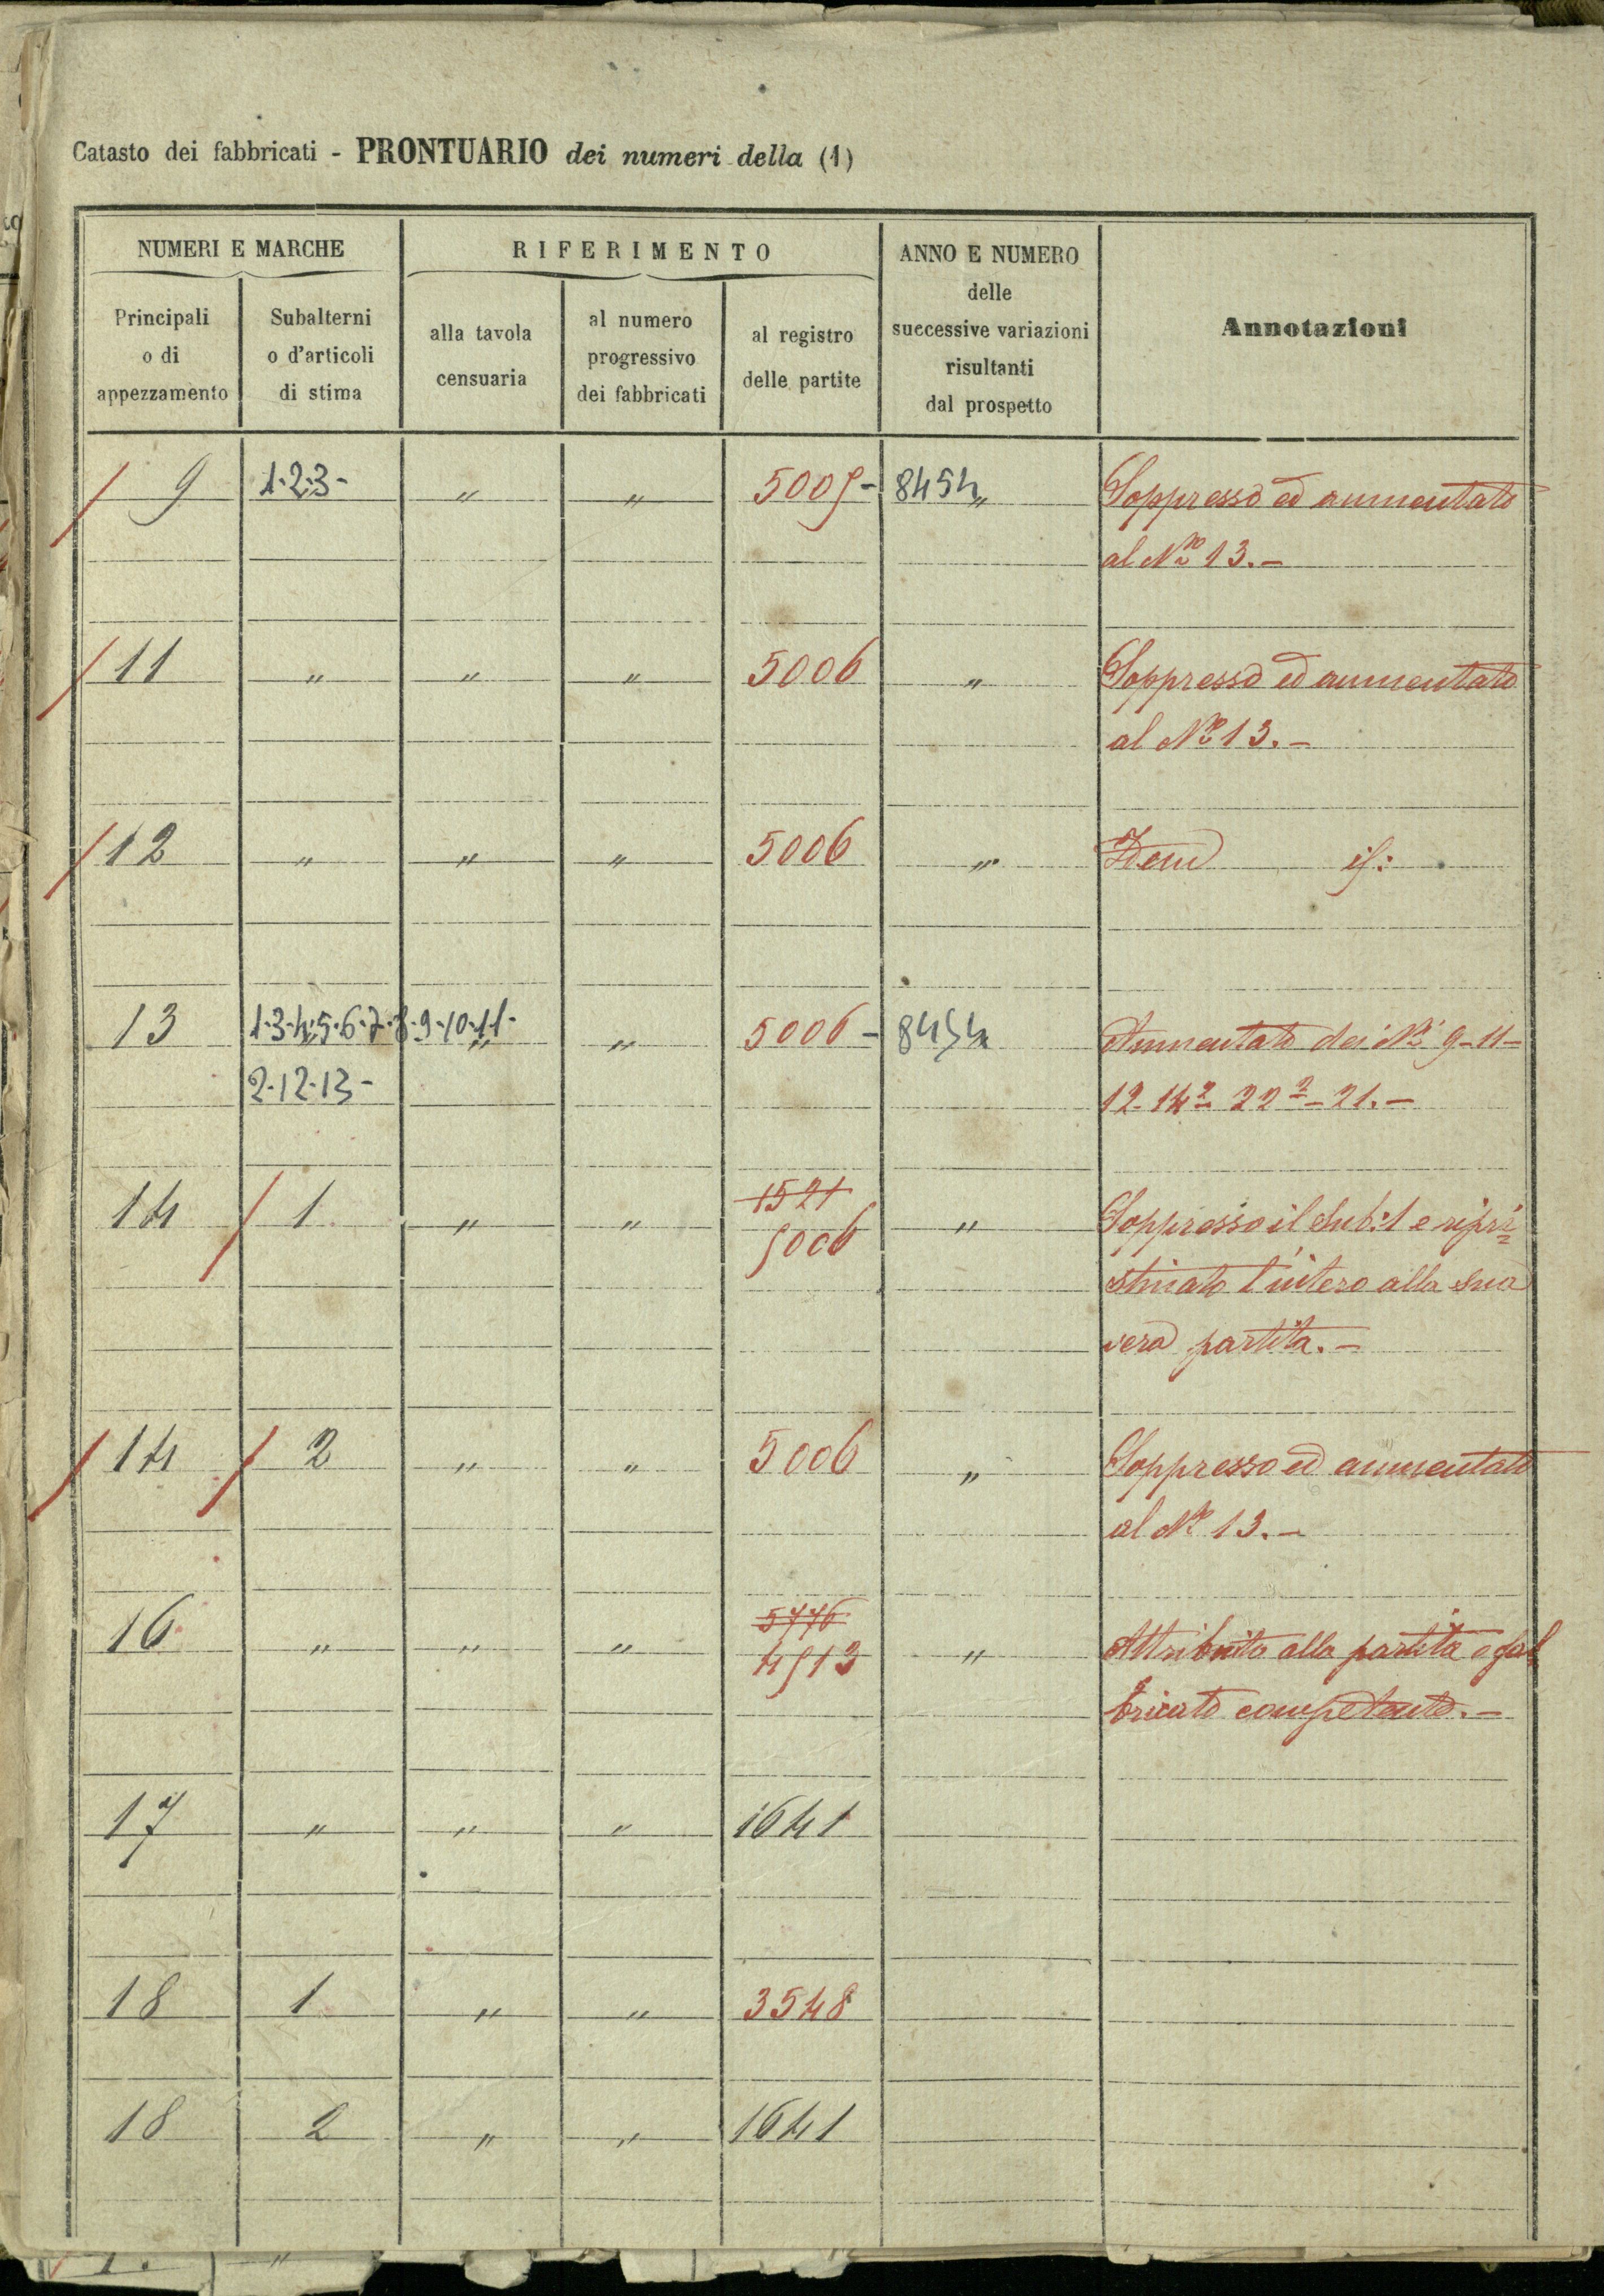 Catasto dei fabbricati - PRONTUARIO dei numeri della (1)
NUMERI E MARCHE
RIFERIMENTO
ANNO E NUMERO
delle
successive variazioni
risultanti
dal prospetto
Annotazioni
Principali
o di
appezzamento
Subalterni
o d'articoli
di stima
alla tavola
censuaria
al numero
progressivo
dei fabbricati
al registro
delle partite
9 1·2·3- " " 5005- 8454 " Soppresso ed aumentato
al No 13.-
11 " " " 5006 " Soppresso ed aumentato
al No 13.-
12 " " " 5006 " Idem
13 1·3·4·5·6·7·8·9·10·11· " " 5006- 8454 Aumentato dei Ni 9-11-
2·12·13- 12-14 2 22 2-21.-
1521
14 1 " " 5006 " Soppresso il Sub: 1 e ripri=
stinato l'intero alla sua
vera partita.-
14 2 " " 5006 " Soppresso ed aumentato
al No 13.-
5776
16 " " " 4513 " Attribuito alla partita e fab
bricato competente.-
17 " " " 1641
18 1 " " 3548
18 2 " " 1641